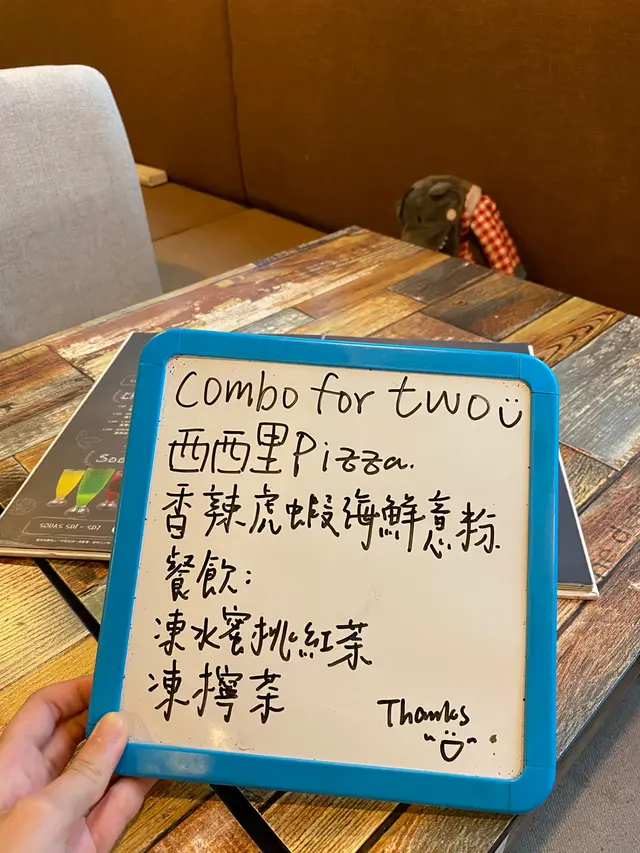 combo for two
西西里Pizza.
香辣虎蝦海鮮意粉
餐飲：
凍水蜜桃紅茶
凍檸茶
Thanks
SODAS $D1 - $D7